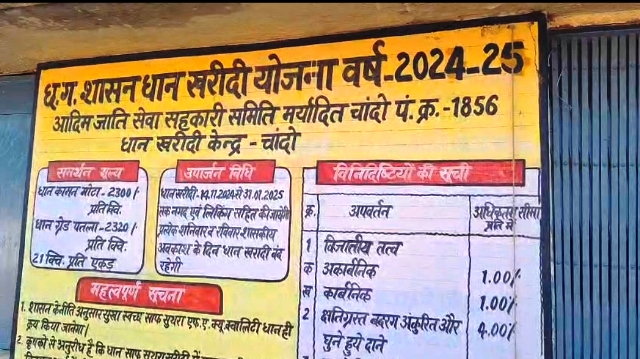 छ.ग. शासन धान खरीदी योजना वर्ष-2024-25
आदिम जाति सेवा सहकारी समिति मर्यादित चांदो पं. क्र.-1856
धान खरीदी केन्द्र - चांदो
समर्थन मूल्य
धान कामन मोटा - 2300/
प्रति क्वि.
धान ग्रेड पतला - 2320/
प्रति क्वि.
21 क्वि. प्रति एकड़
उपार्जन विधि
धान खरीदी - 14.11.2024 से 31.01.2025
तक नगद एवं लिंकिंग सहित की जायेगी
प्रत्येक शनिवार व रविवार शासकीय
अवकाश के दिन धान खरीदी बंद
रहेगी
महत्वपूर्ण सूचना
1. शासन के नीति अनुसार सूखा स्वच्छ साफ सुथरा एफ. ए. क्यू. क्वालिटी धान ही
क्रय किया जायेगा।
2. कृषकों से अनुरोध है कि धान साफ सुथरा
विनिर्दिष्टियों की सूची
क्र. अपवर्तन अधिकतम सीमा
प्रति में
1 विजातीय तत्व
क अकार्बनिक 1.00/
ख कार्बनिक 1.00/
2 क्षतिग्रस्त बदरंग अंकुरित और 4.00/
घुने हुये दाने